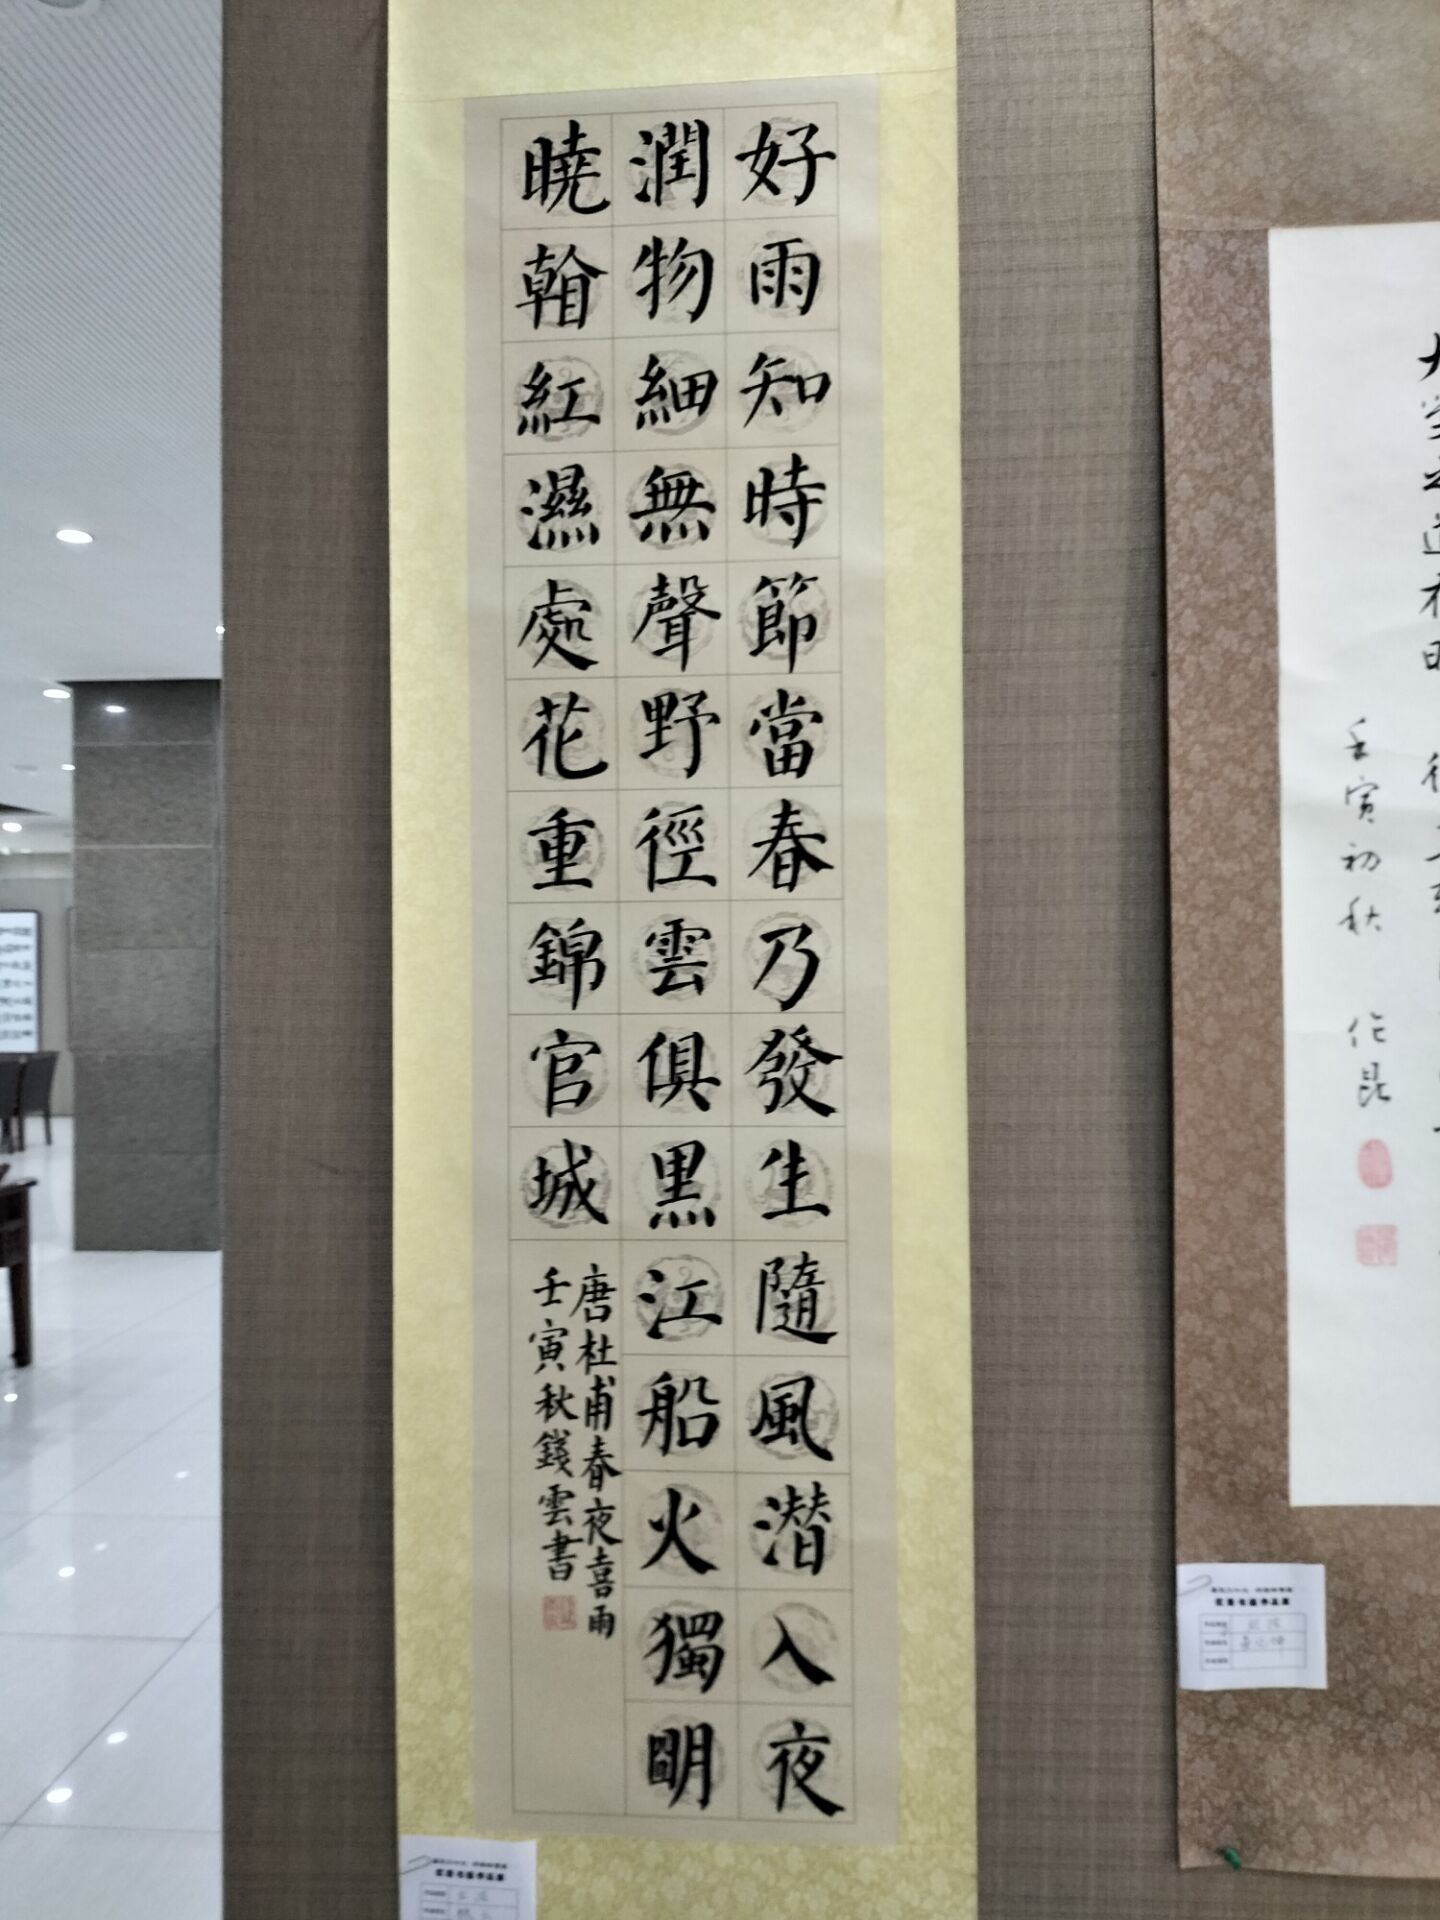 好雨知時節當春乃發生隨風潜入夜
潤物細無聲野徑雲俱黑江船火獨明
曉看紅濕處花重錦官城
唐杜甫春夜喜雨
壬寅秋錢雲書
壬寅初秋 作昆